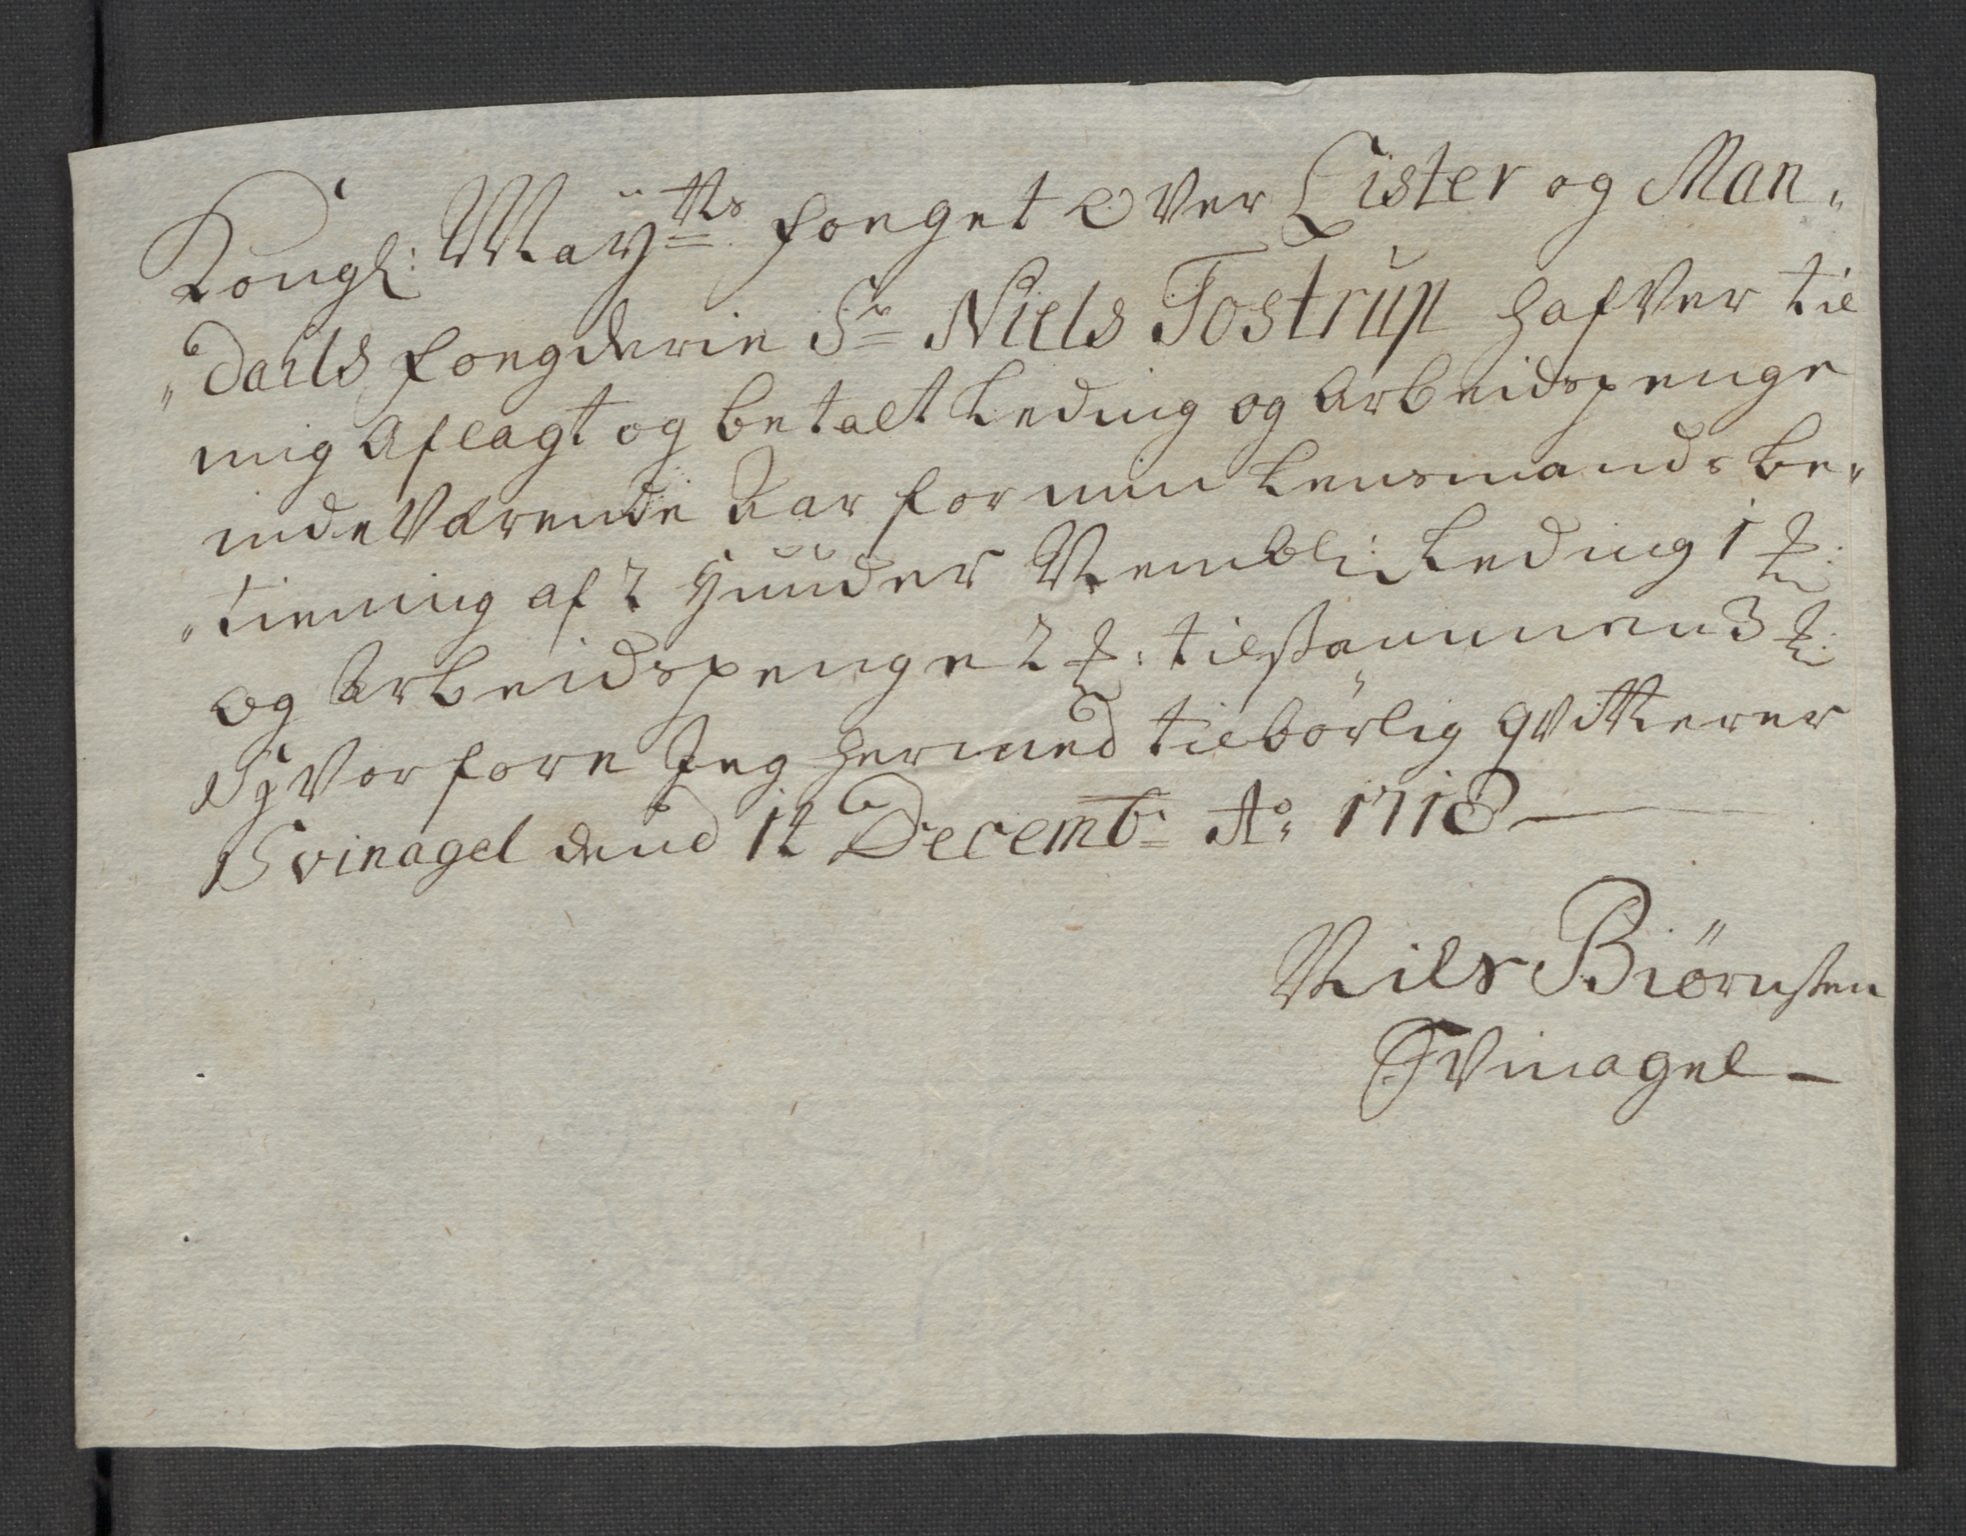 Kongl: Maÿtts foeget over Lister og Man„
„dails foegderie Sr Niels Tostrup hafver til
mig aflagt og betalt Leding og arbeidspenge
indeværende Aar for min Lensmands be„
„tiening af 2 Huuder Nembl: Leding 1 ℔:
og Arbeidspenge 2 ℔: tilsammen 3 ℔:
Hvorfore Jeg hermed tilbörlig qvitterer
Svinagel dend 12 Decemb: Ao 1718
Nils Biörnsen
Svinagel